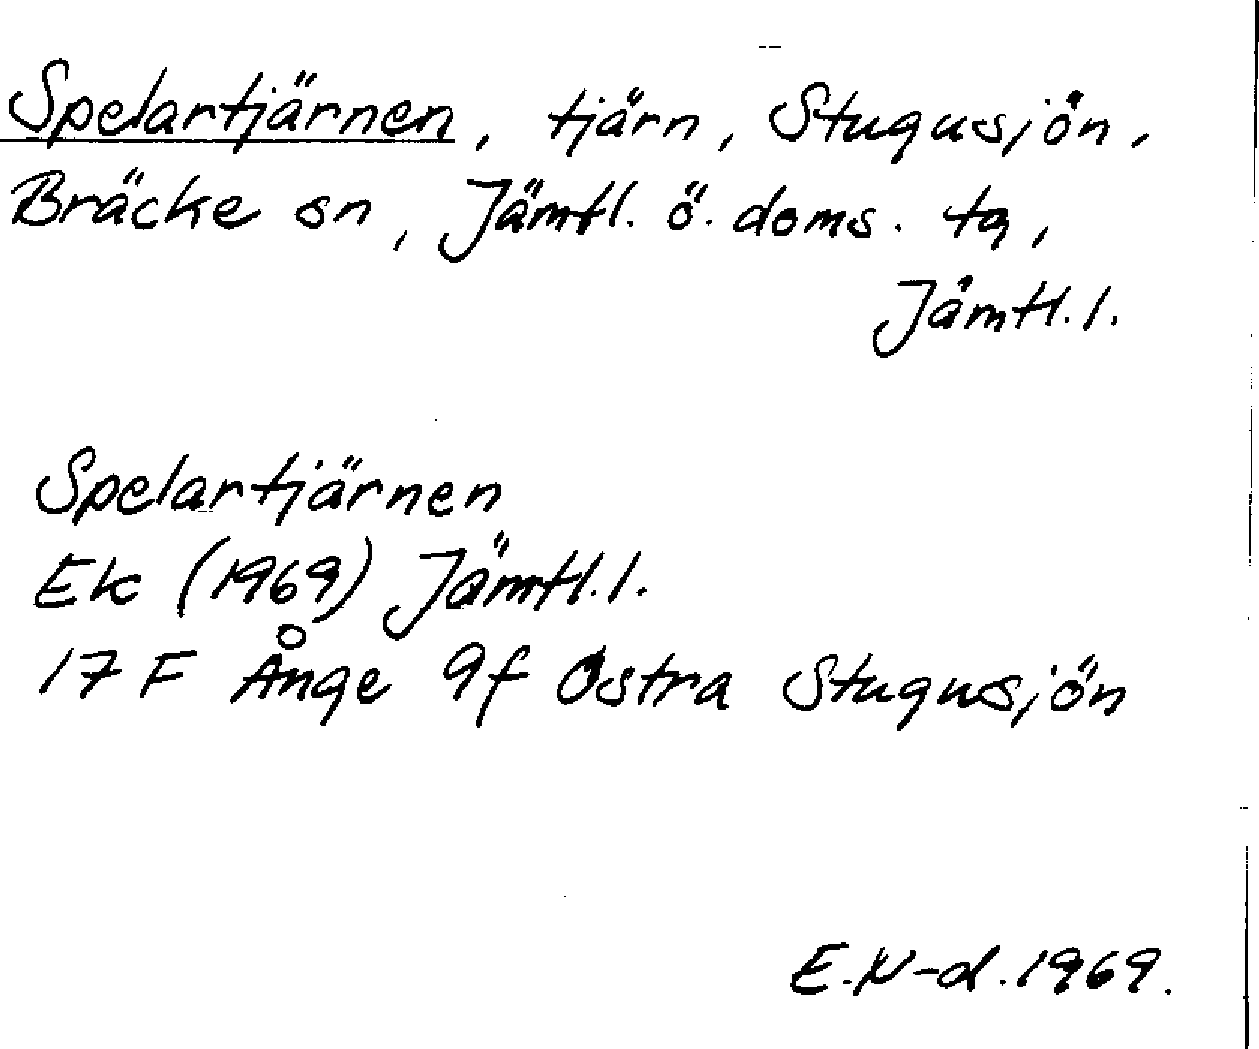 Spelartjärnen, tjärn, Stugusjön,
Bräcke sn, Jämtl. ö. doms. tg,
Jämtl. l.
Spelartjärnen
Ek (1969) Jämtl. l.
17 F Ånge 9f Östra Stugusjön
E.N-d. 1969.